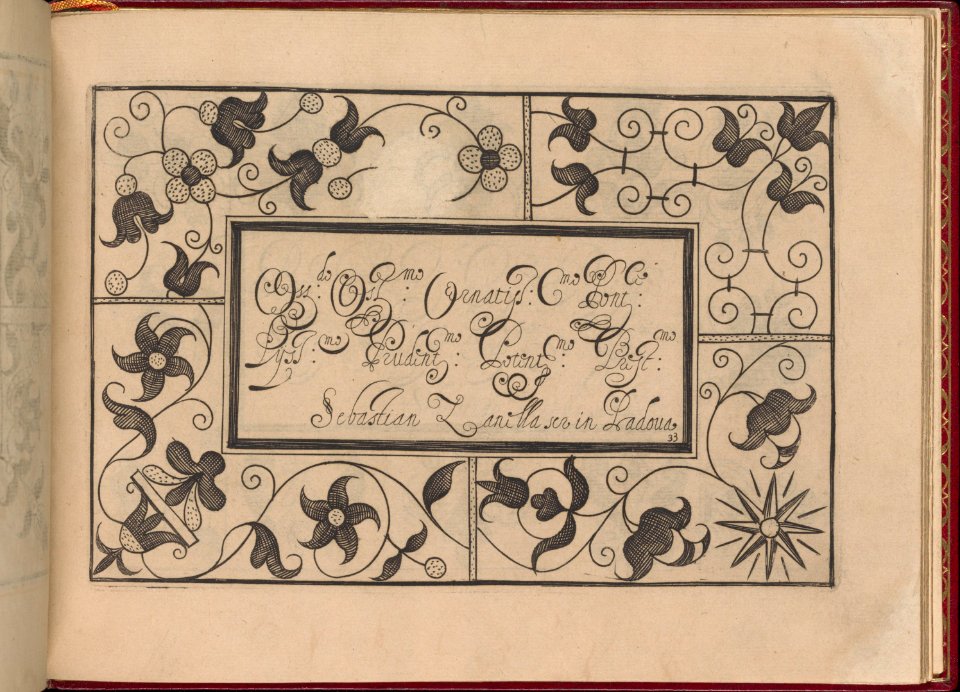 Oss:do Osf:mo Ornatiss:Cmo Pont:
Lyss:mo Prudent:mo Potent:mo Prest:mo
Sebastian Zanella scr in Padoua
33